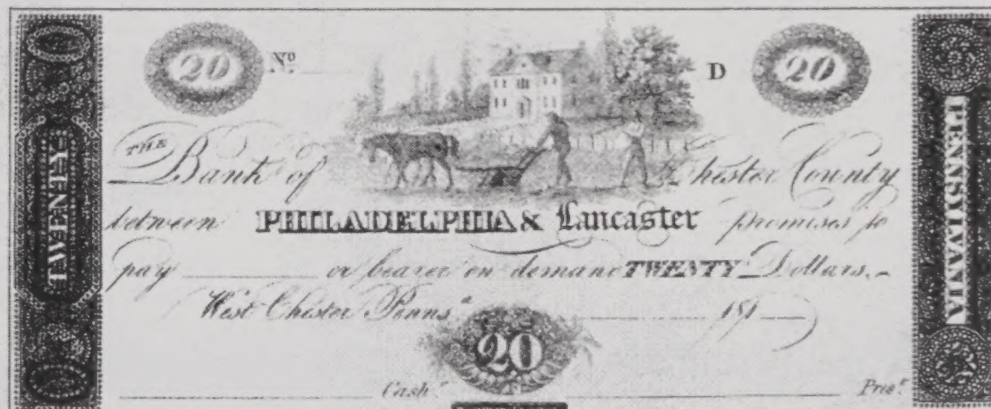 20 Nº D 20
THE Bank of Chester County
between PHILADELPHIA & Lancaster promises to
pay or bearer on demand TWENTY Dollars.
West Chester Pennsª 181
20
Cashʳ. Presᵗ.
TWENTY
PENNSYLVANIA